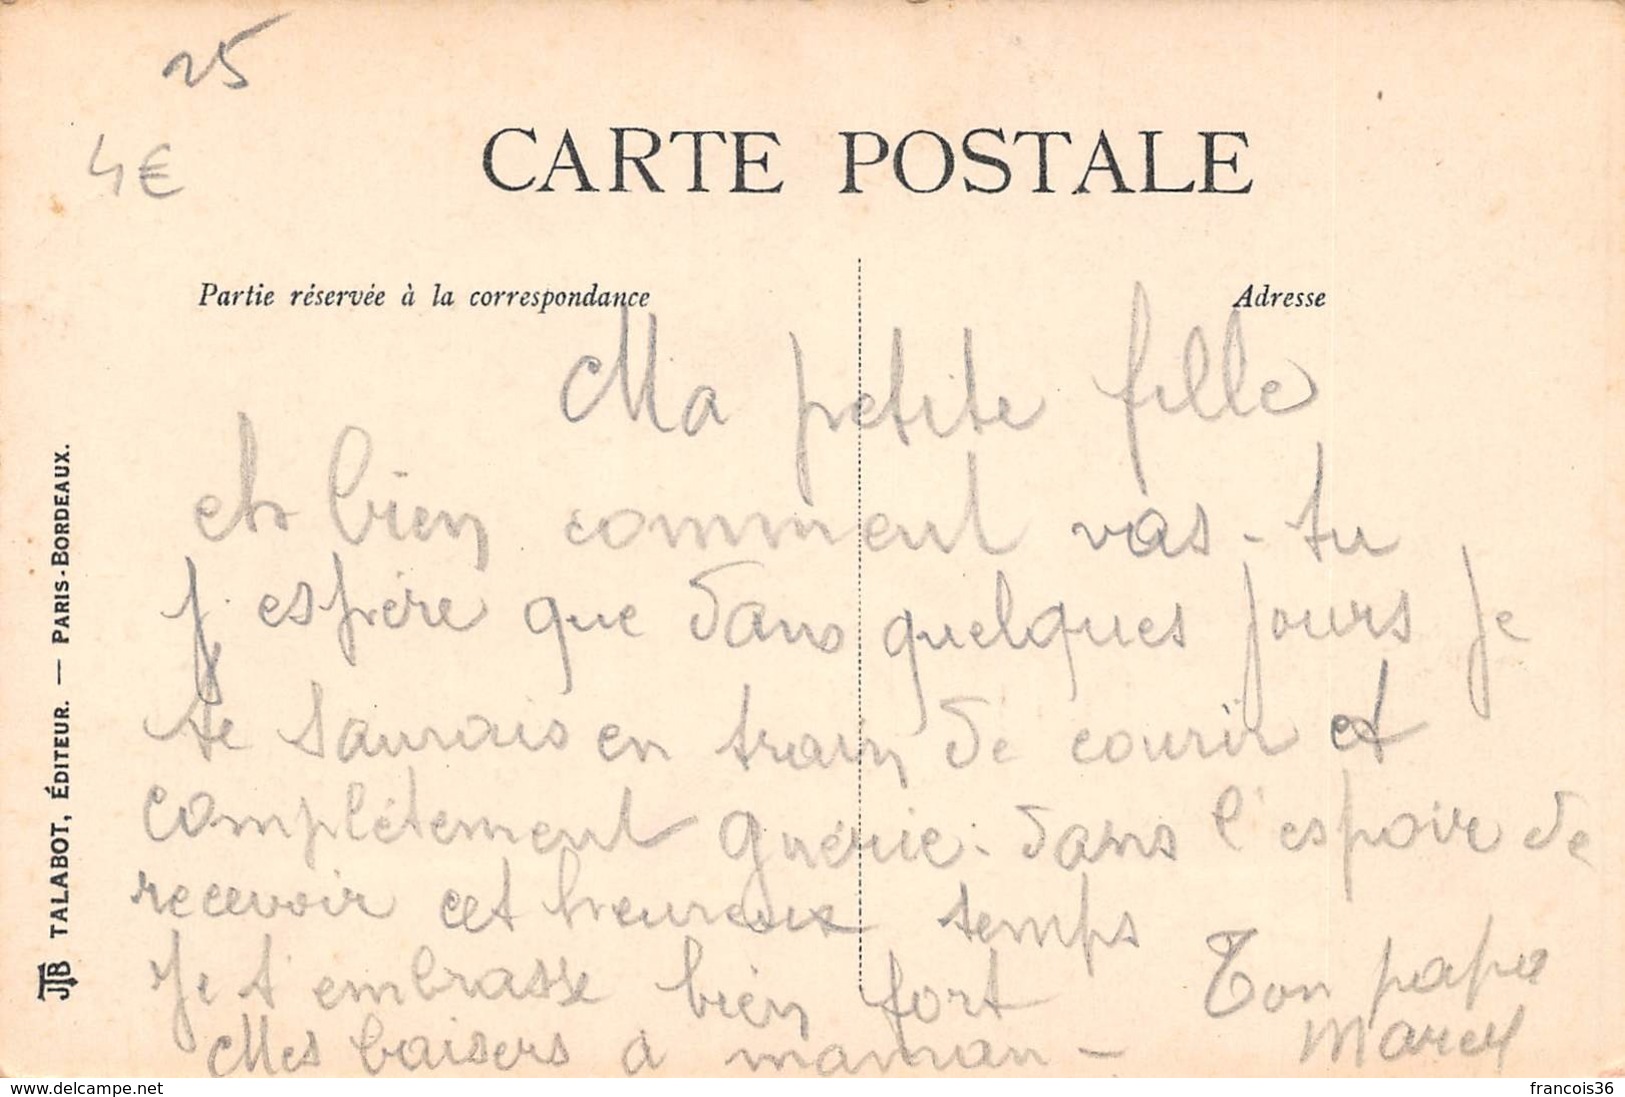 25
4€
CARTE POSTALE
Partie réservée à la correspondance
Adresse
Ma petite fille
eh bien comment vas-tu
j'espère que dans quelques jours je
te saurais en train de courir et
complètement guérie. dans l'espoir de
recevoir cet heureux temps
Je t'embrasse bien fort
Ton papa
Marcel
Mes baisers a maman -
JTB TALABOT, ÉDITEUR. — PARIS-BORDEAUX.
www.delcampe.net
francois36